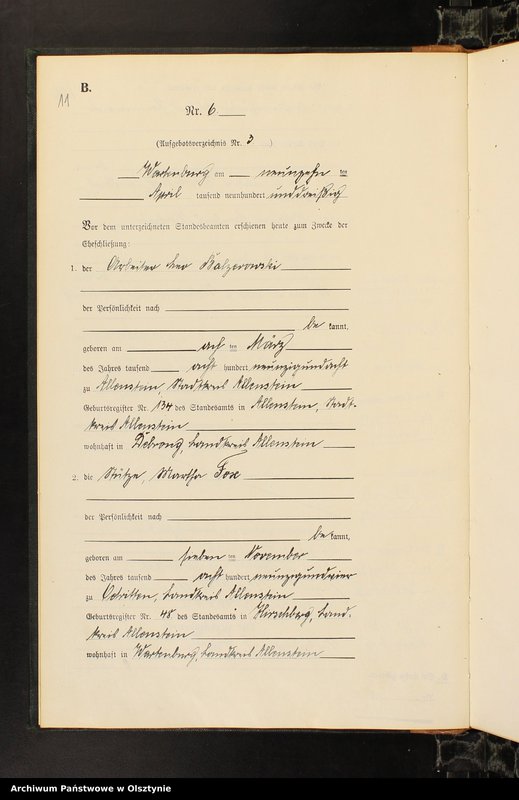 11
B.
Nr. 6.
(Aufgebotsverzeichnis Nr. 3.)
Wartenburg am neunzehn ten
April tausend neunhundert unddreißig
Vor dem unterzeichneten Standesbeamten erschienen heute zum Zwecke der
Eheschließung:
1. der Arbeiter Leo
der Persönlichkeit nach
be kannt,
geboren am acht ten März
des Jahres tausend acht hundert neunzigundacht
zu Allenstein, Stadtkreis Allenstein
Geburtsregister Nr. 134 des Standesamts in Allenstein, Stadt-
kreis Allenstein
wohnhaft in Debrong, Landkreis Allenstein
2. die Stütze, Martha Fox
der Persönlichkeit nach
be kannt,
geboren am sieben ten November
des Jahres tausend acht hundert neunzigundvier
zu Odritten, Landkreis Allenstein
Geburtsregister Nr. 48 des Standesamts in Hirschberg, Land-
kreis Allenstein
wohnhaft in Wartenburg, Landkreis Allenstein
Archiwum Państwowe w Olsztynie